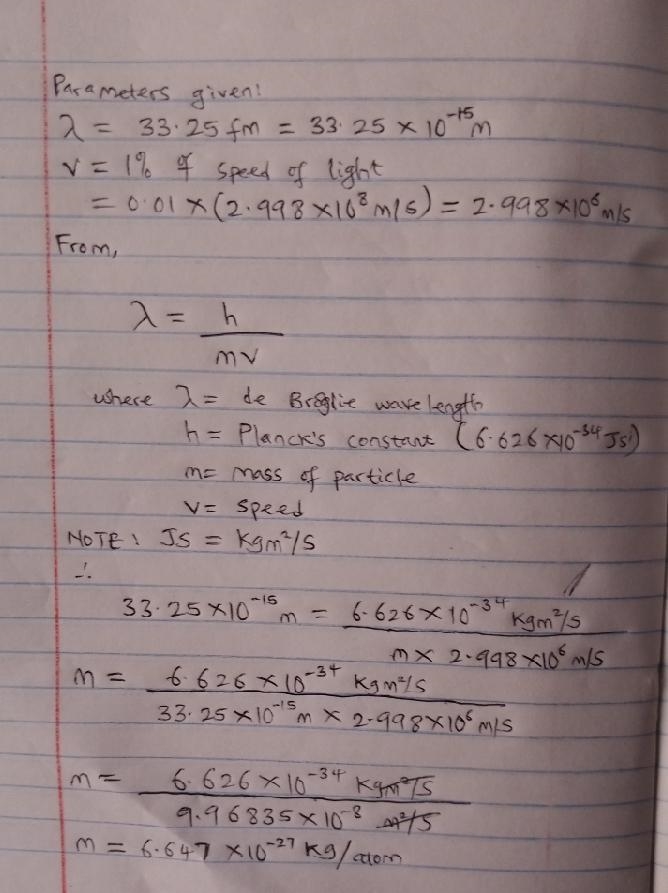 Parameters given:
λ = 33.25 fm = 33.25 × 10⁻¹⁵ m
v = 1% of speed of light
= 0.01 × (2.998 × 10⁸ m/s) = 2.998 × 10⁶ m/s
From,
λ = h
mv
where λ = de Broglie wavelength
h = Planck's constant (6.626 × 10⁻³⁴ Js)
m = mass of particle
v = speed
NOTE: Js = Kgm²/s
∴
33.25 × 10⁻¹⁵ m = 6.626 × 10⁻³⁴ Kgm²/s
m × 2.998 × 10⁶ m/s
m = 6.626 × 10⁻³⁴ Kgm²/s
33.25 × 10⁻¹⁵ m × 2.998 × 10⁶ m/s
m = 6.626 × 10⁻³⁴ Kgm²/s
9.96835 × 10⁻⁸ m²/s
m = 6.647 × 10⁻²⁷ Kg/atom